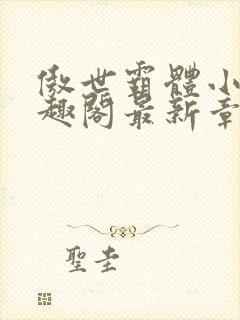 傲世霸體小
趣閣最新章
聖圭